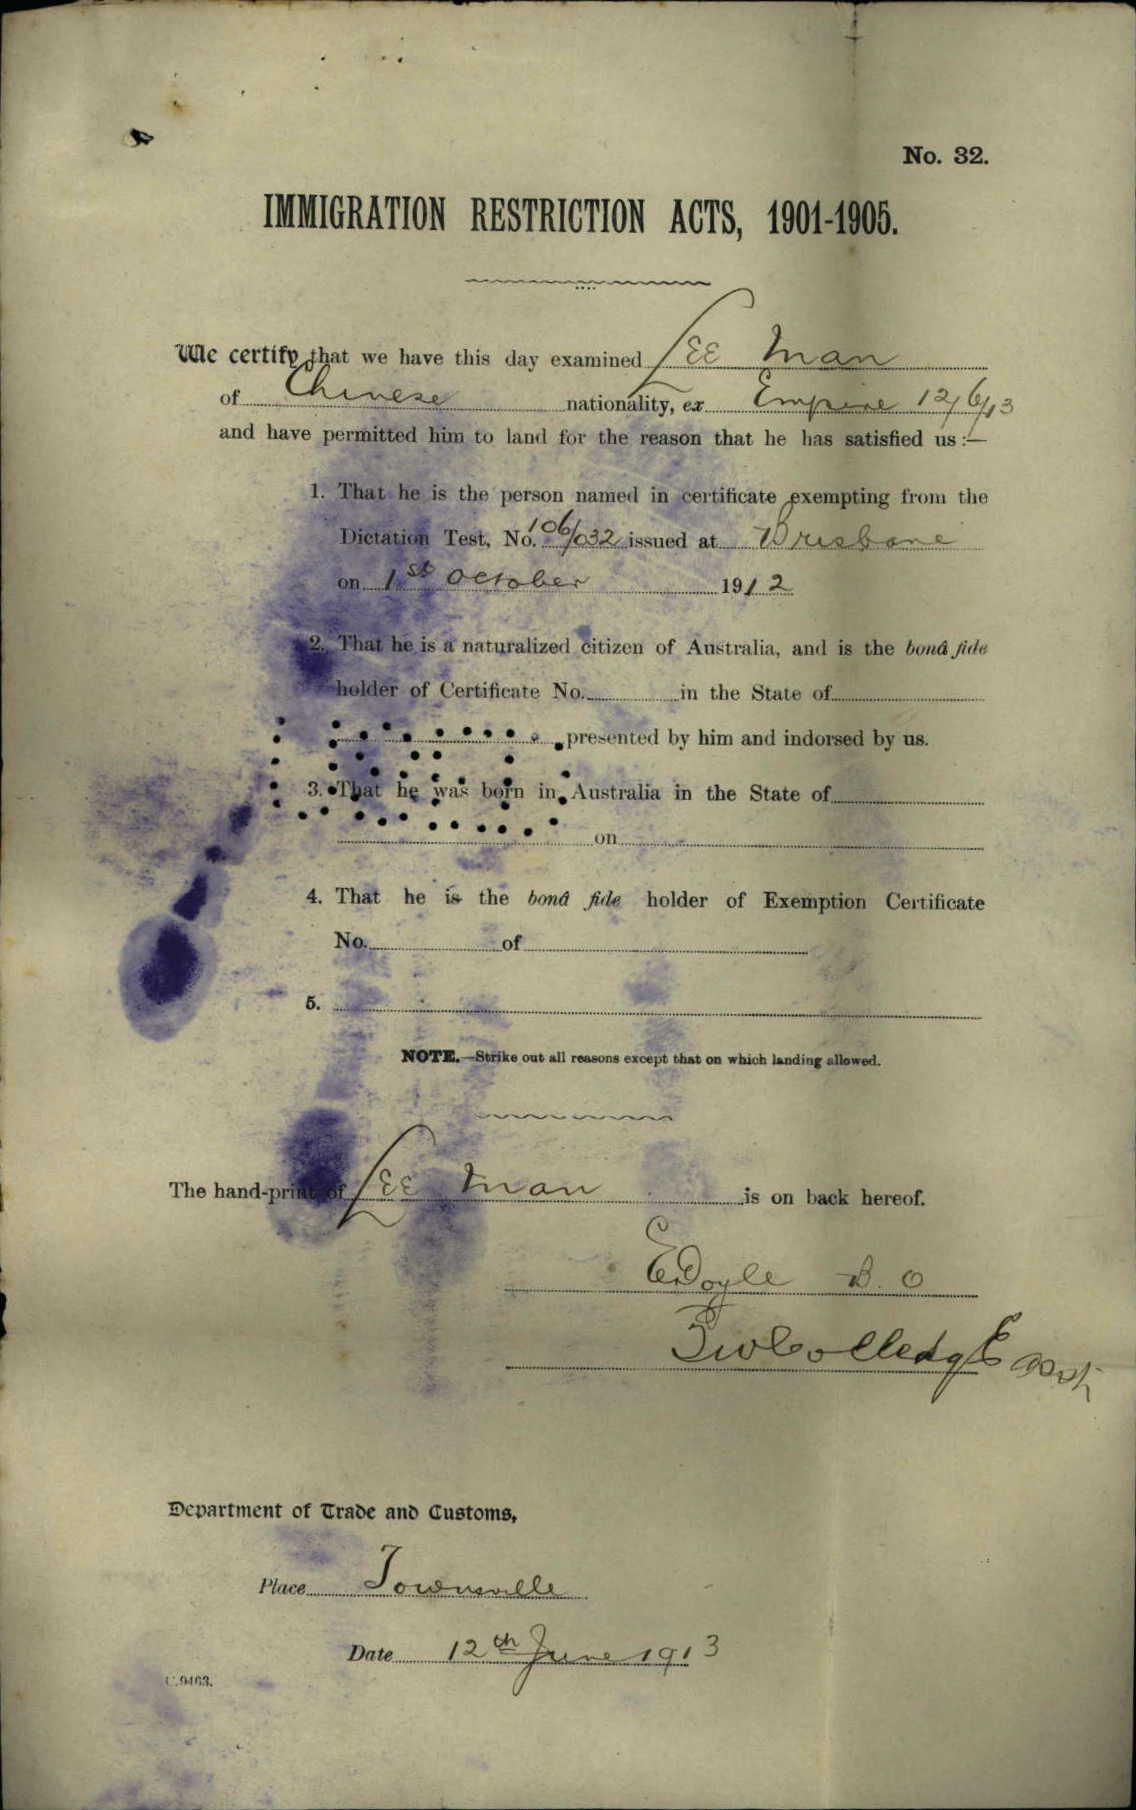 No. 32.
IMMIGRATION RESTRICTION ACTS, 1901-1905.
We certify that we have this day examined Lee Man
of Chinese nationality, ex Empire 12/6/13
and have permitted him to land for the reason that he has satisfied us :—
1. That he is the person named in certificate exempting from the
Dictation Test, No. 106/032 issued at Brisbane
on 1st October 1912
2. That he is a naturalized citizen of Australia, and is the bonâ fide
holder of Certificate No. in the State of
presented by him and indorsed by us.
3. That he was born in Australia in the State of
on
4. That he is the bonâ fide holder of Exemption Certificate
No. of
5.
NOTE.—Strike out all reasons except that on which landing allowed.
The hand-print of Lee Man is on back hereof.
E Doyle B. O
Colledge
Department of Trade and Customs,
Place Townsville
Date 12th June 1913
C.9463.